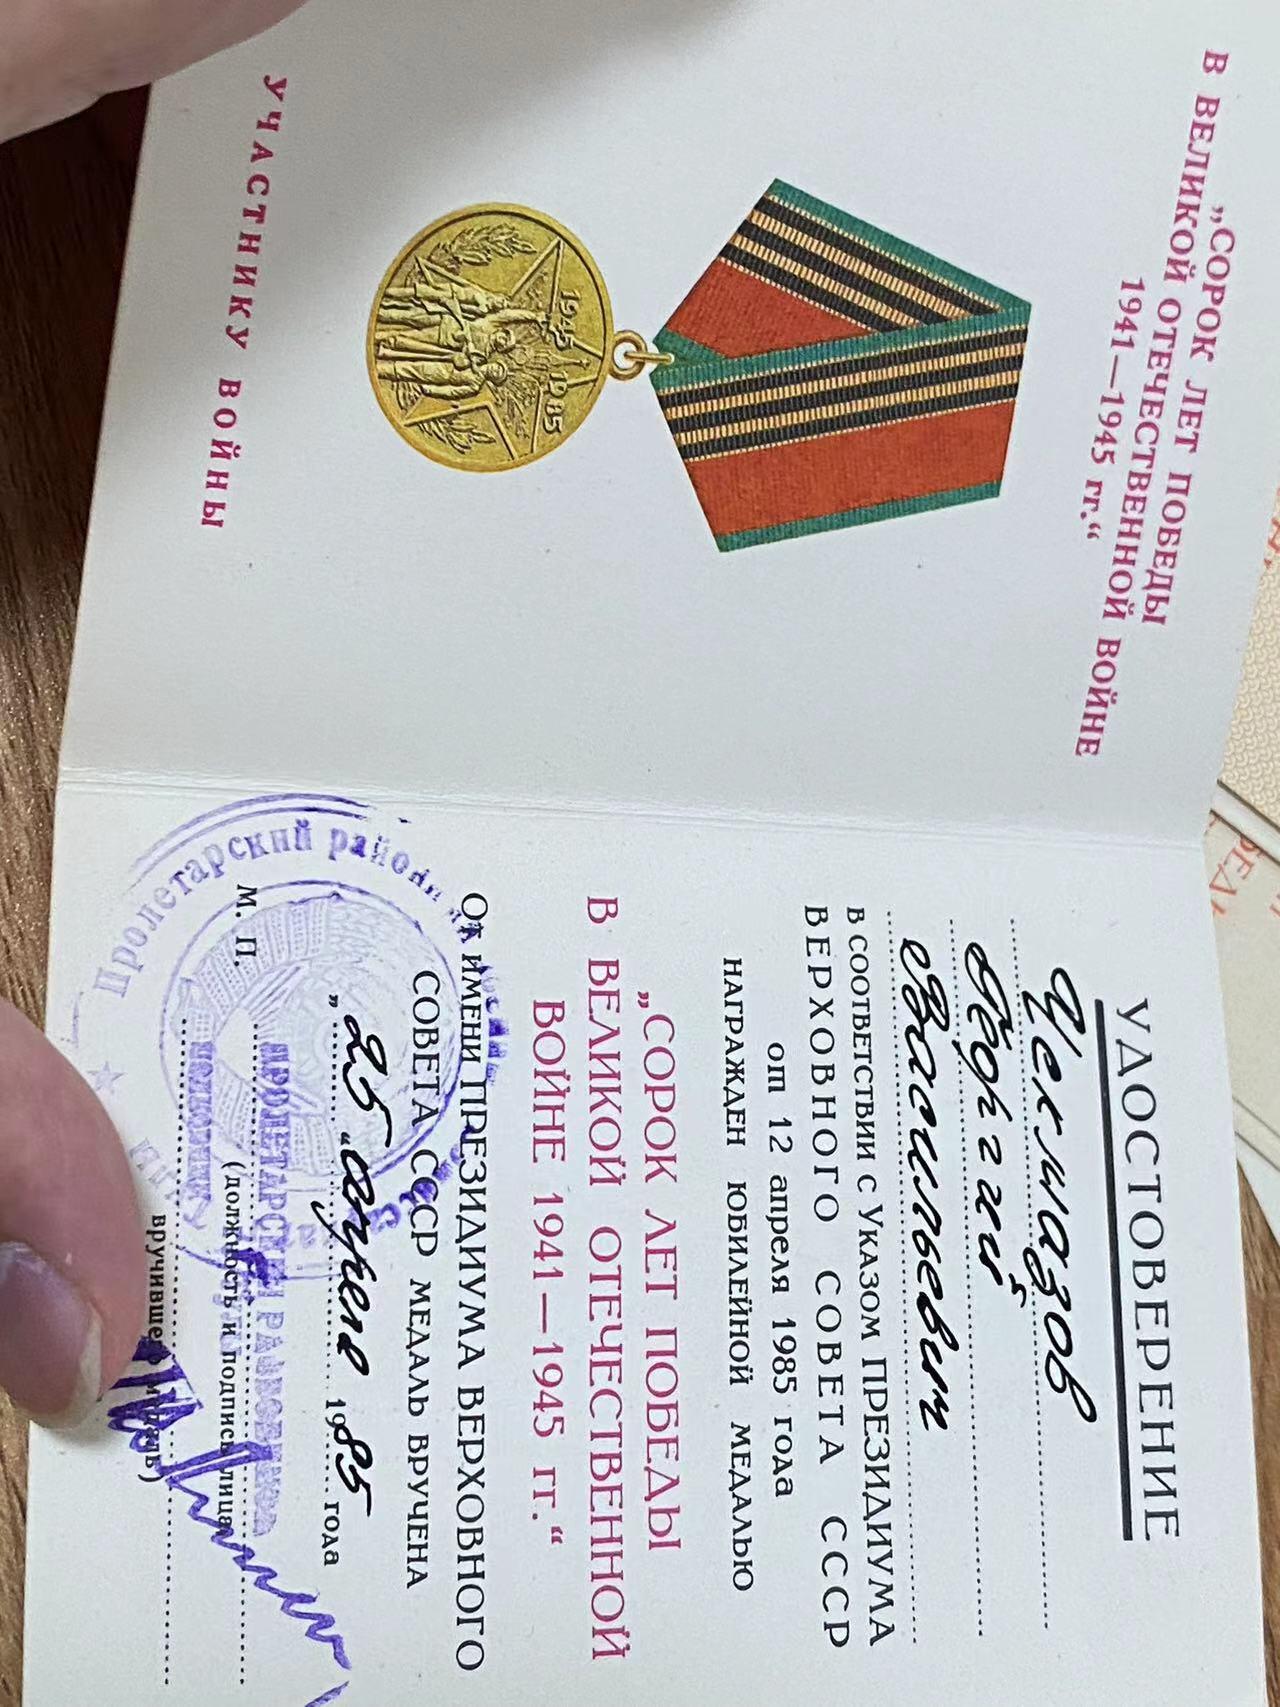 „СОРОК ЛЕТ ПОБЕДЫ
В ВЕЛИКОЙ ОТЕЧЕСТВЕННОЙ ВОЙНЕ
1941—1945 гг.“
1945 1985
УЧАСТНИКУ ВОЙНЫ
УДОСТОВЕРЕНИЕ
Чекмазов
Георгий
Васильевич
в соответствии с Указом ПРЕЗИДИУМА
ВЕРХОВНОГО СОВЕТА СССР
от 12 апреля 1985 года
НАГРАЖДЕН ЮБИЛЕЙНОЙ МЕДАЛЬЮ
„СОРОК ЛЕТ ПОБЕДЫ
В ВЕЛИКОЙ ОТЕЧЕСТВЕННОЙ
ВОЙНЕ 1941—1945 гг.“
От имени ПРЕЗИДИУМА ВЕРХОВНОГО
СОВЕТА СССР МЕДАЛЬ ВРУЧЕНА
„25“ апреля 1985 года
М. П.
(должность и подпись лица,
вручившего медаль)
Пролетарский